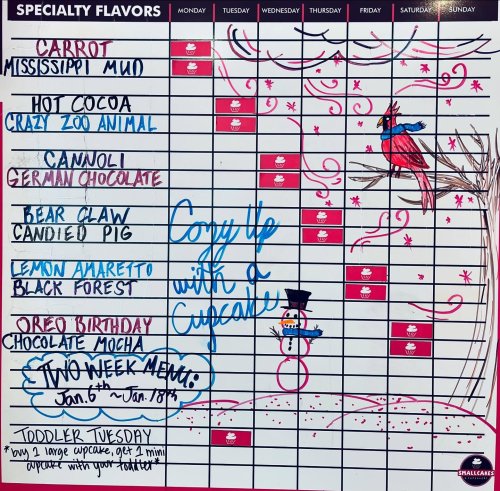 SPECIALTY FLAVORS MONDAY TUESDAY WEDNESDAY THURSDAY FRIDAY SATURDAY SUNDAY
CARROT
MISSISSIPPI MUD
HOT COCOA
CRAZY ZOO ANIMAL
CANNOLI
GERMAN CHOCOLATE
BEAR CLAW
CANDIED PIG
Cozy Up
with a
Cupcake
LEMON AMARETTO
BLACK FOREST
OREO BIRTHDAY
CHOCOLATE MOCHA
TWO WEEK MENU:
Jan. 6th ~ Jan. 18th
TODDLER TUESDAY
*buy 1 large cupcake, get 1 mini
cupcake with your toddler*
SMALLCAKES